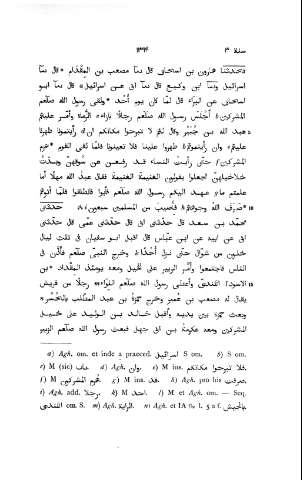 سنة ٣ ١٣٩۴ ٣
فحدثنا هارون بن اسحاق قال نا مصعب بن المقدام قال نا
اسرائيل ونا ابن وكيع قال نا ابى عن اسرائيل قال نا ابو
اسحاق عن البراء قال لما كان يوم أُحُد ولقى رسول الله صلعم
المشركين اجلس رسول الله صلعم رجلًا بازاء الرماة وأمر عليهم
عبد الله بن جُبَيْر وقال لهم لا تبرحوا مكانكم ان رأيتمونا ظهرنا
عليهم وان رأيتموهم ظهروا علينا فلا تعينونا فلما لقى القوم هزم
المشركين حتى رأيت النساء قد رفعن عن سُوقهن وبدت
خلاخيلهن فجعلوا يقولون الغنيمة الغنيمة فقال عبد الله مهلًا أما
علمتم ما عهد اليكم رسول الله صلعم فأبوا فانطلقوا فلما أتوهم
صَرَفَ اللهُ وجوههم فأصيب من المسلمين سبعون حدثنى
محمد بن سعد قال حدثنى ابى قال حدثنى عمى قال حدثنى
ابى عن ابيه عن ابن عباس قال اقبل ابو سفيان فى ثلث ليال
خلون من شوال حتى نزل أُحُدًا وخرج النبى صلعم فأذن فى
الناس فاجتمعوا وأمر الزبير على الخيل ومعه يومئذ المقداد بن
الاسود الكندى وأعطى رسول الله صلعم اللواء رجلًا من قريش
يقال له مصعب بن عمير وخرج حمزة بن عبد المطلب بالحُسَّر
وبعث حمزة بين يديه وأقبل خالد بن الوليد على خيل
المشركين ومعه عكرمة بن ابى جهل فبعث رسول الله صلعم الزبير
a) Agh. om. et inde a praeced. اسرائيل S om. b) S om.
c) M (sic) باب. d) Agh. وان. e) M ins. فلا تبرحوا مكانكم.
f) M هُزِم المشركون g) M ins. قد. h) Agh. pro his صرفت
i) Agh. add. رجلا. k) M احد. l) M et Agh. om. — Seq.
الكندى om. S. m) Agh. الراية. n) Agh. et IA n. l. 5 a f. بالجيش.